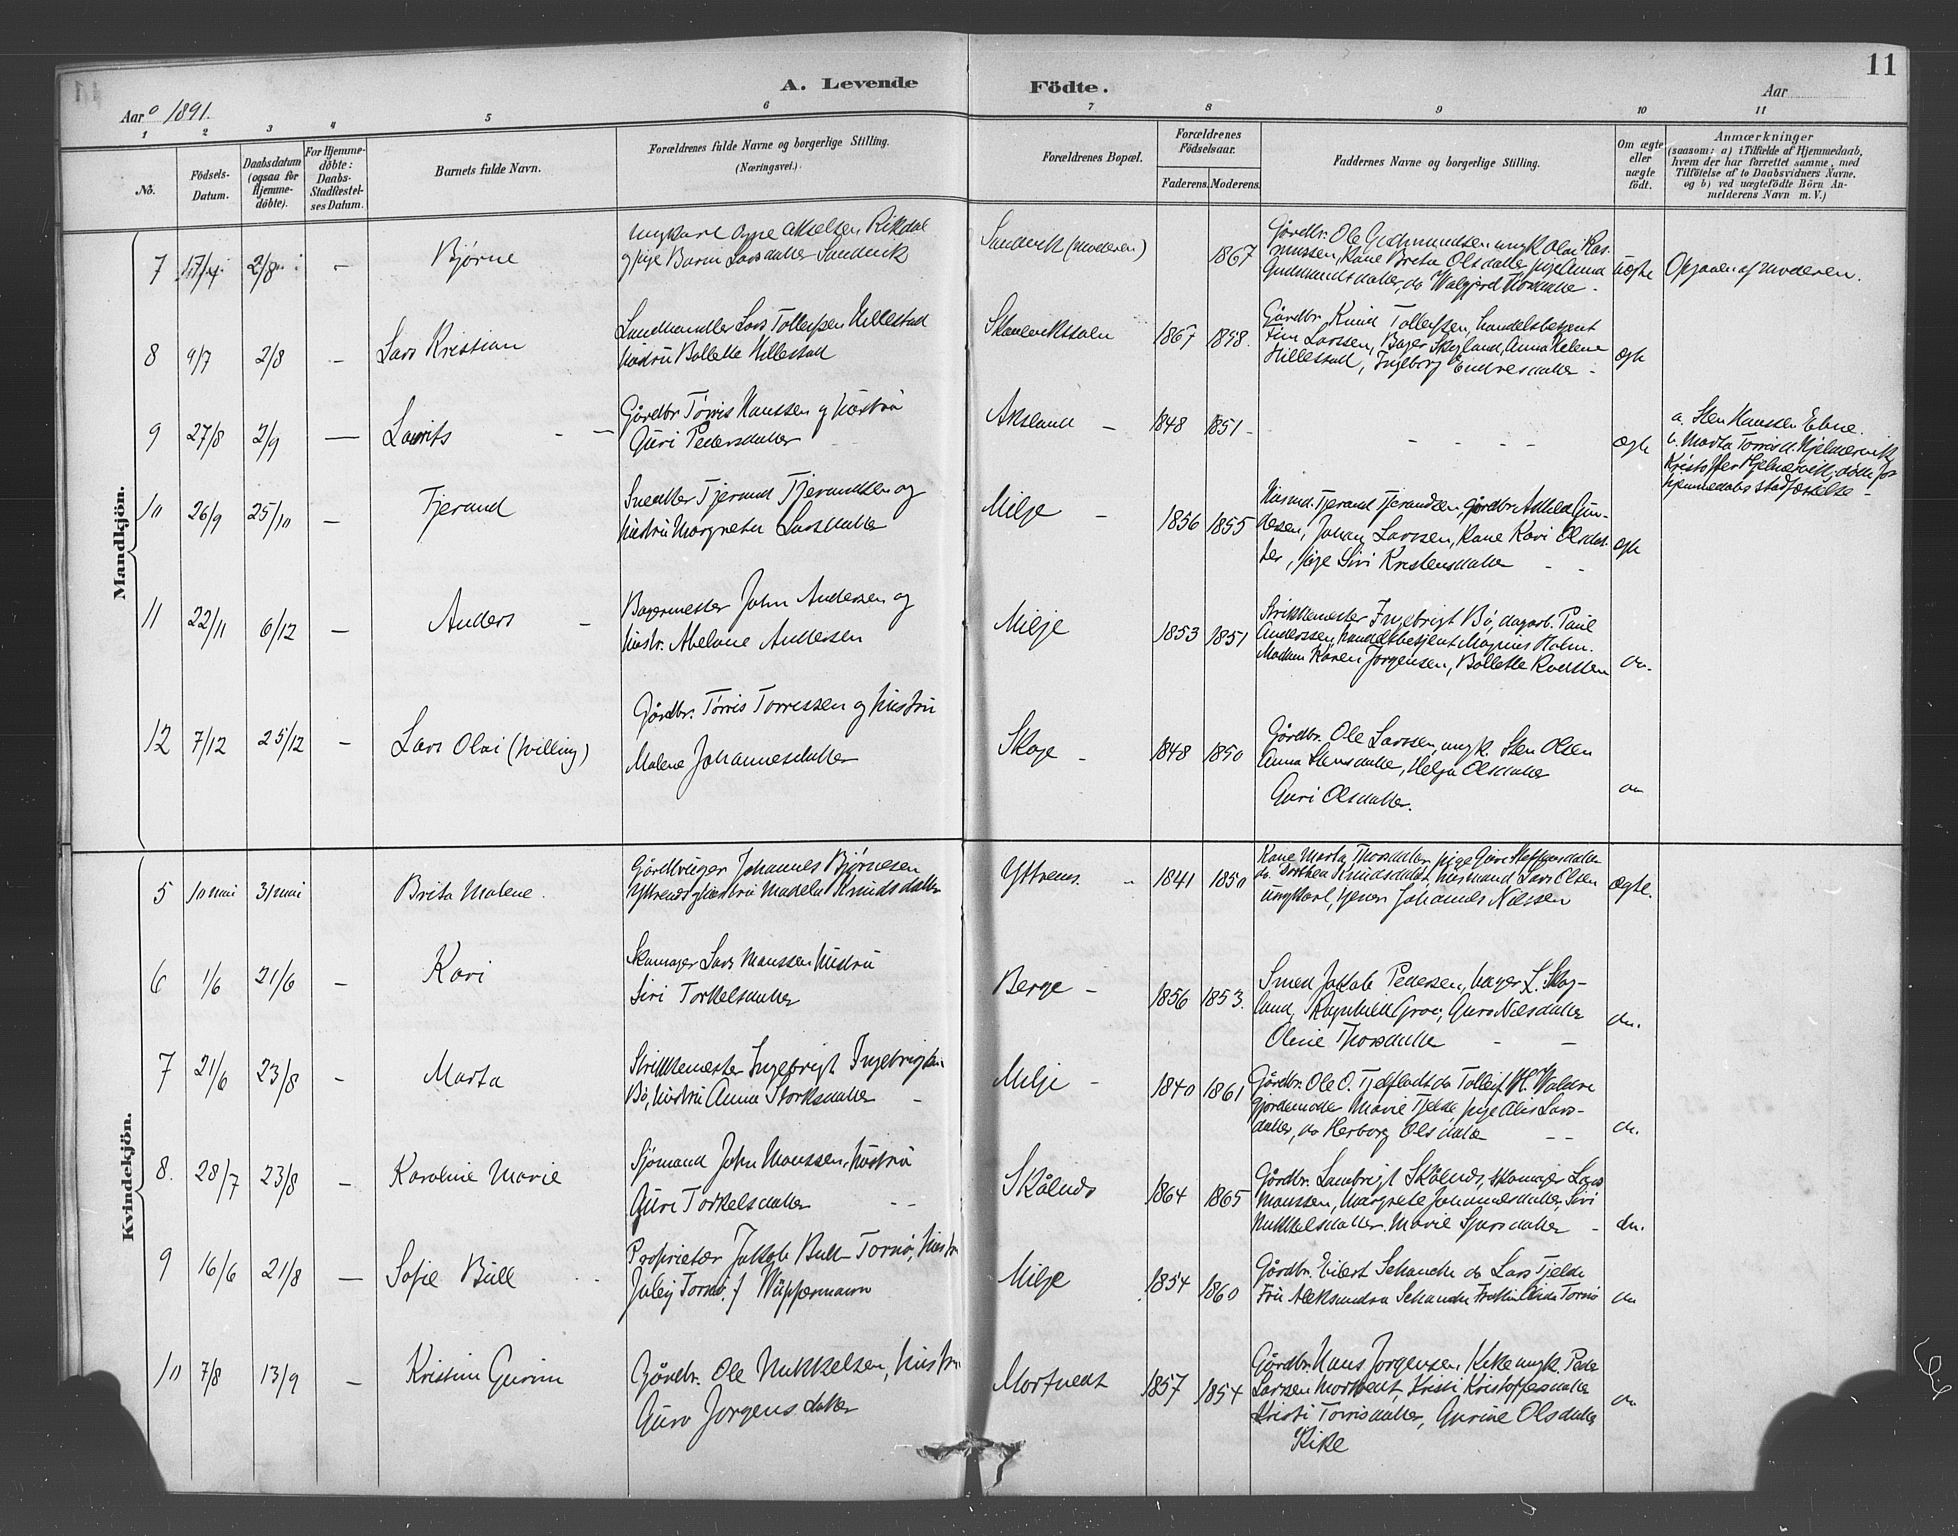 11
A. Levende Födte.
Aar 1891.
Aar
1 2 3 4 5 6 7 8 9 10 11
No.
Födsels-Datum.
Daabsdatum (ogsaa for Hjemme-döbte).
For Hjemme-döbte: Daabs-Stadfæstel-ses Datum.
Barnets fulde Navn.
Forældrenes fulde Navne og borgerlige Stilling.
(Næringsvei.)
Forældrenes Bopæl.
Forældrenes Födselsaar.
Faderens. Moderens.
Faddernes Navne og borgerlige Stilling.
Om ægte eller uægte födt.
Anmærkninger
(saasom: a) i Tilfælde af Hjemmedaab,
hvem der har forrettet samme, med
Tilföielse af to Daabsvidners Navne,
og b) ved uægtefödte Börn An-
melderens Navn m. V.)
Mandkjön.
7 17/4 2/8 – Bjørne
ungkarl Akselsen Rikdal
og pige Larsdatter Sandvik
Sandvik (moderen) 1867
Gårdbr. Ole Gudmundsen, ungk Olai Ras-
mussen, Kone Brita Olsdatter, pige Anna
Gudmundsdatter, do Walgjerd
uægte
Opgaven af moderen.
8 9/7 2/8 – Lars Kristian
Landhandler Lars Tollefsen Hillestad
hustru Bollette Hillestad
1867 1858.
Gårdbr. Knud Tollefsen, handelsbetjent
Finn Larssen, Bager Skogland, Anna Helene
Hillestad, Ingeborg Endresdatter –
ægte
9 27/8 2/9 — Laurits – –
Gårdbr Tørris Hanssen og hustru
Guri Pedersdatter
Aksland – 1848 1851 – – – – –
ægte
a. Sten Hanssen Ebne.
b. Marta Torrisd. Hjelmervik
Kristoffer Hjelmervik, døde før
hjemmedabs stadfæstelse –
10 26/9 25/10 – Tjerand
Snedker Tjerand Tjerandsen og
hustru Margreta Larsdatter
Milje – 1856 1855
Husmd. Tjerand Tjerandsen, gårdbr.
Johan Larssen, Kone Kari Olsdat-
ter, pige Siri Kristensdatter – –
ægte
11 22/11 6/12 – Anders –
Bagermester John Andersen og
hustr. Abelone Andersen
Milje 1853 1851
Strikkemester Ingebrigt Bø, dagarb. Paul
Anderssen, handelsbetjent Magnus Holm.
Madam Karen Jørgensen, Bollette
do.
12 7/12 25/12 – Lars Olai (tvilling)
Gårdbr. Tørris Torressen og hustru
Malene Johannesdatter
Skoge – 1848 1850
Gårdbr. Ole Larssen, ungk. Sten Olsen
Anna Stensdatter, Helga Olsdatter
Guri Olsdatter.
do
Kvindekjön.
5 10 mai 31 mai Brita Malene.
Gårdbruger Johannes Bjørnesen
Ytrenes og hustru Madela Knudsdatter
Ytrenes. 1841 1850
Kone Marta Thorsdatter, pige Guri
do. Dorthea Knudsdatter, husmand Lars Olsen
ungkarl, tjener Johannes Nilssen
ægte.
6 1/6 21/6 – Kari
Skomager Lars Monssen hustru
Siri Torkelsdatter
Berge – 1856 1853.
Smed Jakob Pedersen, bager L. Skog-
land, Ragnhild Groe, Guro Nilsdatter
Oline Thorsdatter – –
do.
7 21/6 23/8 – Marta
Strikkemester Ingebrigt Ingebrigtsen
Bø, hustru Anna Storksdatter –
Milje – 1840 1861
Gårdbr. Ole O. Tjelflaat do Tollef H. Valdre
gjordemoder Marie Tjelde pige Alis Lars-
datter, do Herborg Olsdatter – –
do.
8. 28/7 23/8 – Karoline Marie
Sjømand John Monssen, hustru
Guri Torkelsdatter – –
Skålnes 1864 1865
Gårdbr. Lambrigt Skålnes, skomager Lars
Monssen, Margrete Johannesdatter, Siri
Mikkelsdatter, Marie Sjursdatter –
do.
9 16/6 21/8 – Sofie Bull
Proprietær Jakob Bull Tornø, hustru
Juley Tornø f Wüppermann
Milje 1854 1860
Gårdbr. Eilert Schanche do Lars Tjelde
Fru Aleksandra Schanche Frøken Tornø
do
10 7/8 13/9 – Kristine Gurine
Gårdbr. Ole Mikkelsen, hustru
Guro Jørgensdatter
Mortvedt 1857 1854
Gårdbr. Hans Jørgensen, Kike ungk. Peder
Larssen Mortvedt, Kristi Kristoffersdatter
Kristi Torrisdatter, Gurine Olsdatter
Kike
do